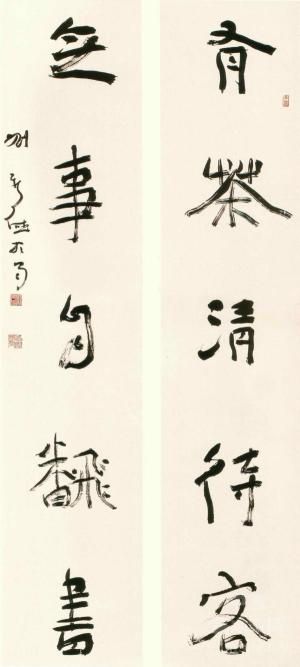 有茶清待客
無事自飜書